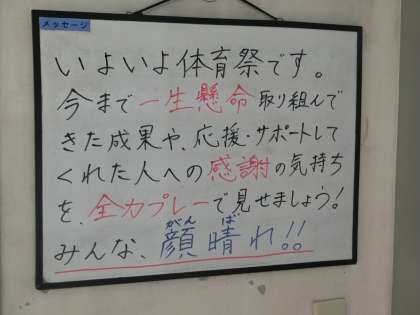 メッセージ
いよいよ体育祭です。
今まで一生懸命取り組んで
きた成果や、応援・サポートして
くれた人への感謝の気持ち
を、全力プレーで見せましょう!
みんな、顔晴れ!!
がん ば